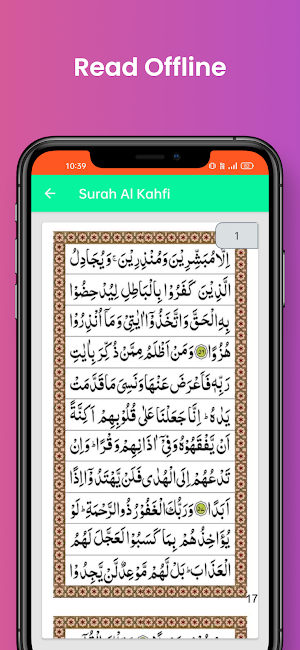 Read Offline
10:39
Surah Al Kahfi
1
اِلَّا مُبَشِّرِيْنَ وَمُنْذِرِيْنَ ۚ وَيُجَادِلُ
الَّذِيْنَ كَفَرُوْا بِالْبَاطِلِ لِيُدْحِضُوْا
بِهِ الْحَقَّ وَاتَّخَذُوْٓا اٰيٰتِيْ وَمَآ اُنْذِرُوْا
هُزُوًا ۵۶ وَمَنْ اَظْلَمُ مِمَّنْ ذُكِّرَ بِاٰيٰتِ
رَبِّهٖ فَاَعْرَضَ عَنْهَا وَنَسِيَ مَا قَدَّمَتْ
يَدٰهُ ۗ اِنَّا جَعَلْنَا عَلٰى قُلُوْبِهِمْ اَكِنَّةً
اَنْ يَّفْقَهُوْهُ وَفِيْٓ اٰذَانِهِمْ وَقْرًا ۗ وَاِنْ
تَدْعُهُمْ اِلَى الْهُدٰى فَلَنْ يَّهْتَدُوْٓا اِذًا
اَبَدًا ۵۷ وَرَبُّكَ الْغَفُوْرُ ذُو الرَّحْمَةِ ۗ لَوْ
يُؤَاخِذُهُمْ بِمَا كَسَبُوْا لَعَجَّلَ لَهُمُ
الْعَذَابَ ۗ بَلْ لَّهُمْ مَّوْعِدٌ لَّنْ يَّجِدُوْا
17